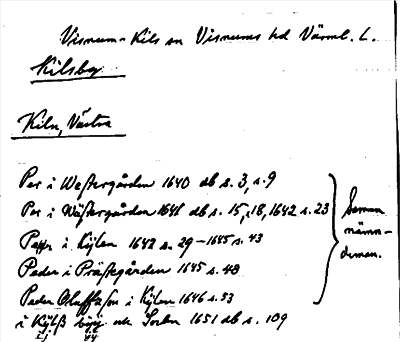 Visnum-Kils sn Visnums hd Värml. L.
Kilsby
Kiln, Västra
Per i Westergården 1640 db s. 3, s. 9
Per i Wästergården 1641 db s. 15, 18, 1642 s. 23
i Kylen 1642 s. 29 - 1645 s. 43
Peder i Prästegården 1645 s. 48
Peder Oluffson i Kylen 1646 s. 53
i Kylß 1651 db s. 109
Samma
nämn-
deman.